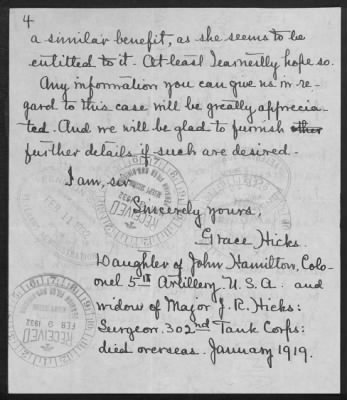 4
a similar benefit, as she seems to be
entitled to it. At least I earnestly hope so.
Any information you can give us in re-
gard to this case will be greatly apprecia-
ted. And we will be glad to furnish other
further details if such are desired-
I am, sir
Sincerely yours,
Grace Hicks.
Daughter of John Hamilton, Colo-
onel 5th Artillery. U.S.A. and
widow of Major J. R. Hicks:
Surgeon. 302nd Tank Corps:
died overseas. January 1919.
RECEIVED
RECEIVED
FEB 9 1932